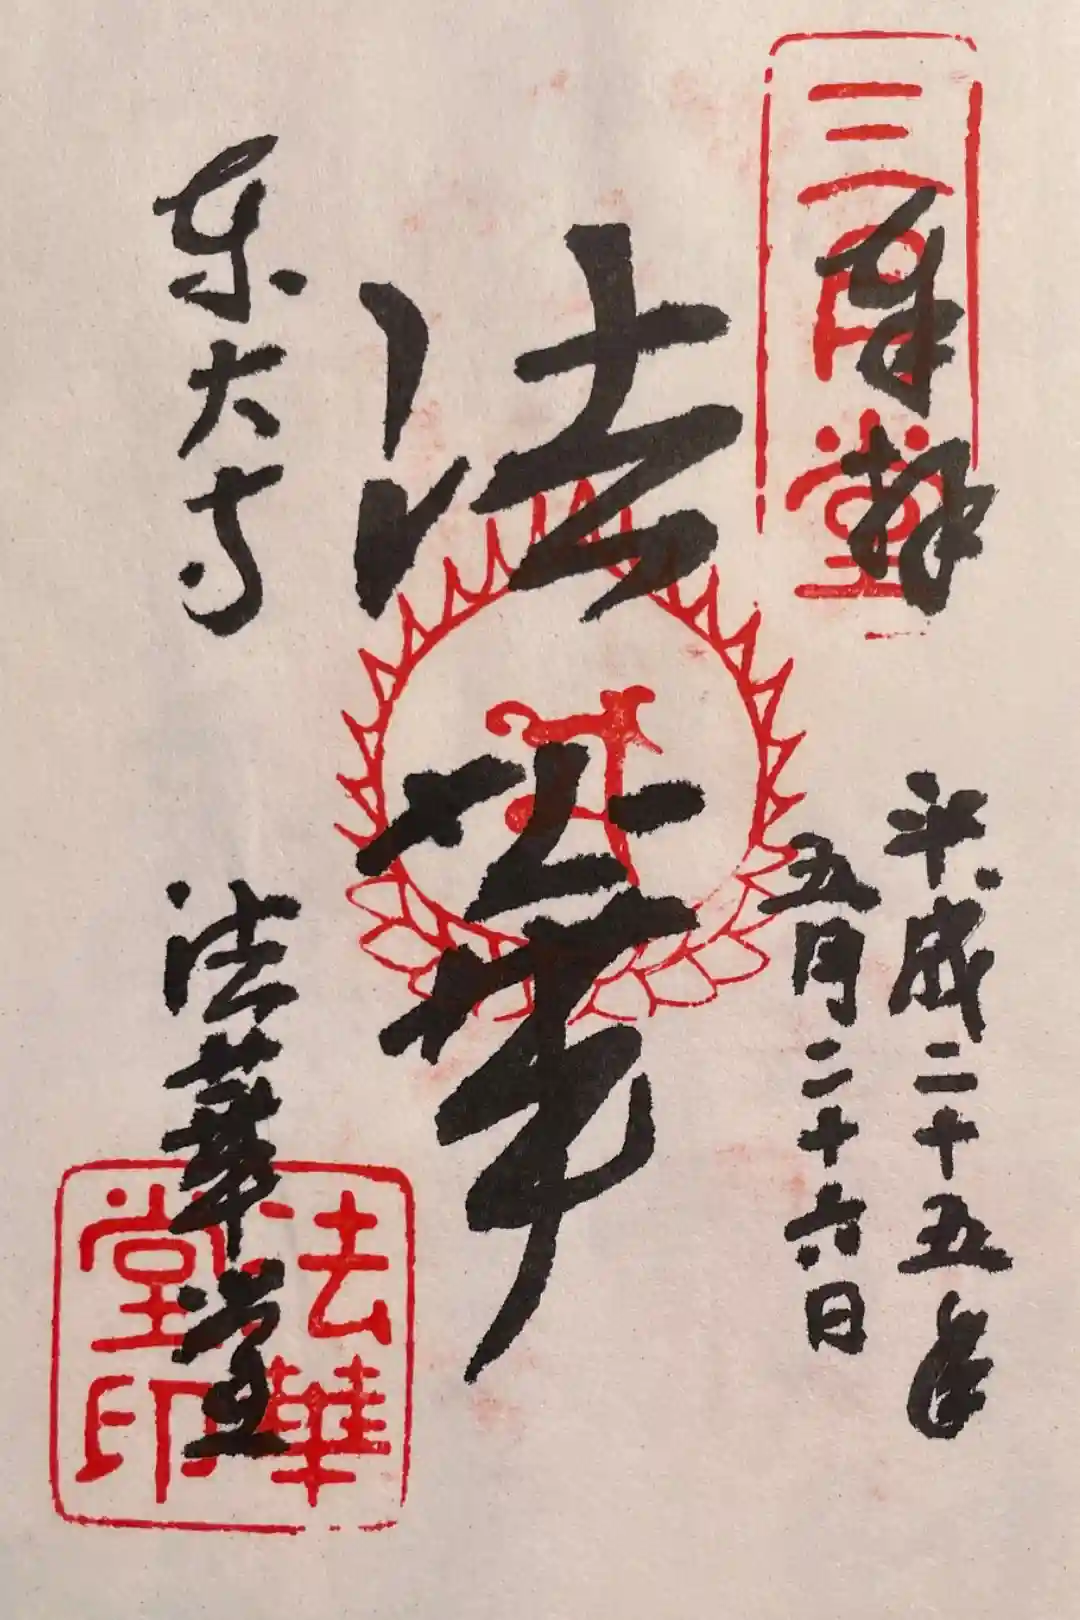 奉拝
三月堂
平成二十五年
五月二十六日
法華
東大寺
法華堂
法華堂印